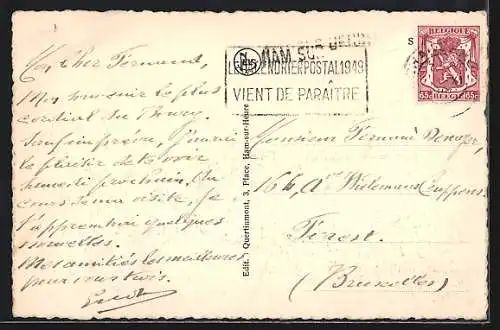 Mon cher Fernand,
Mon souvenir le plus
cordial du Bourg.
Sauf imprévu, j'aurai
le plaisir de te voir
samedi prochain. Au
cours de ma visite, je
t'apprendrai quelques
nouvelles.
Mes amitiés les meilleures
pour vous trois.
Edit.: Quertinmont, 3, Place, Ham-sur-Heure
HAM-SUR-HEURE
LE CALENDRIER POSTAL 1949
VIENT DE PARAÎTRE
BELGIQUE
65c BELGIË 65c
S
Monsieur Fernand
166, Av. Wielemans Ceuppens
Forest.
(Bruxelles)